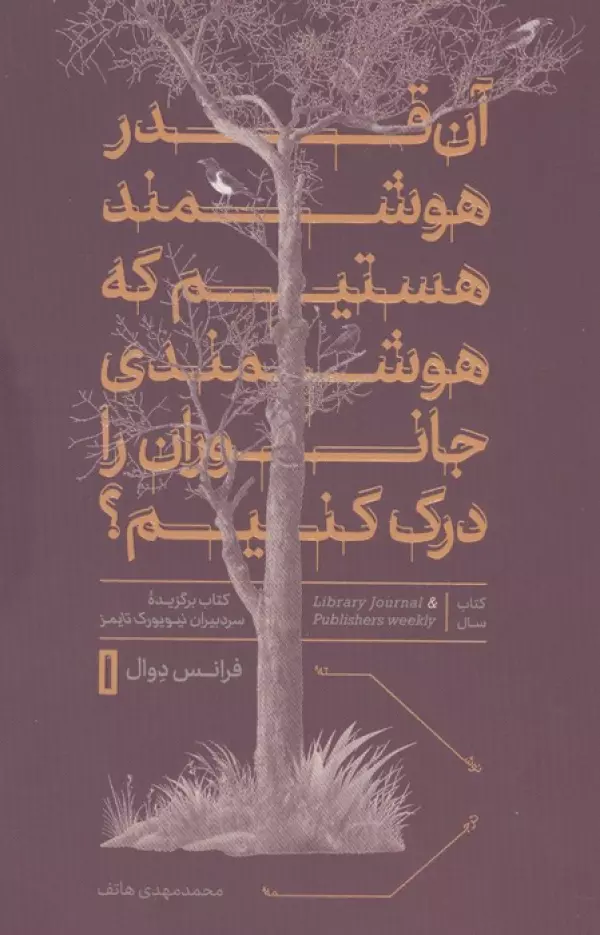 آن قدر
هوشمند
هستیم که
هوشمندی
جانوران را
درک کنیم؟
کتاب سال
Library Journal &
Publishers weekly
کتاب برگزیدهٔ
سردبیران نیویورک تایمز
فرانس دِوال
محمدمهدی هاتف